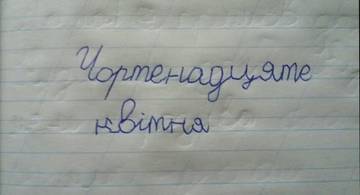 Чортенадцяте
квітня